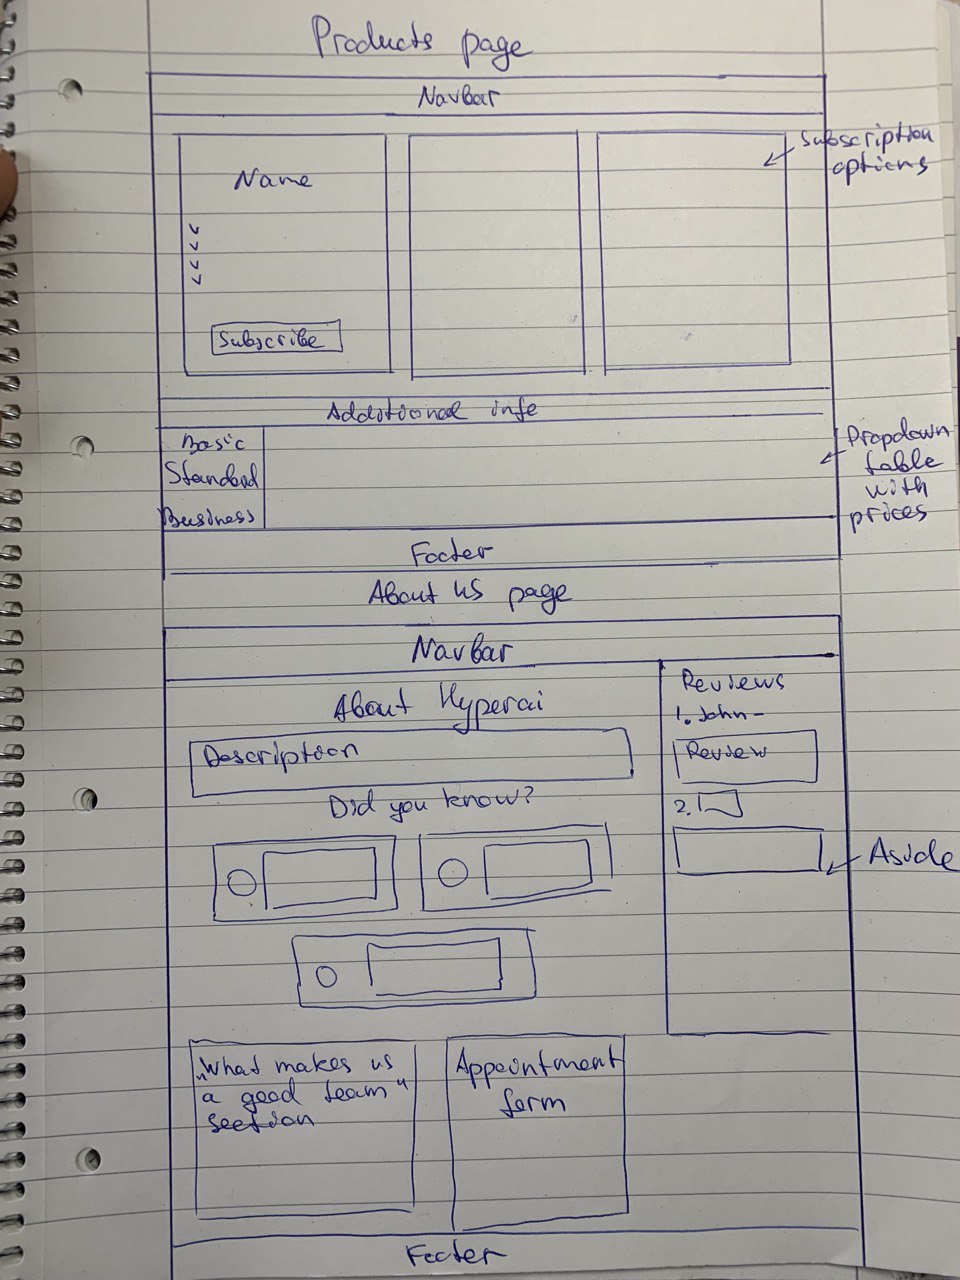 Products page
Navbar
Subscription
options
Name
Subscribe
Additional info
Basic
Standard
Business
Dropdown
table
with
prices
Footer
About us page
Navbar
About Hyperai
Description
Did you know?
Reviews
1. John -
Review
2.
Aside
„What makes us
a good team"
section
Appointment
form
Footer